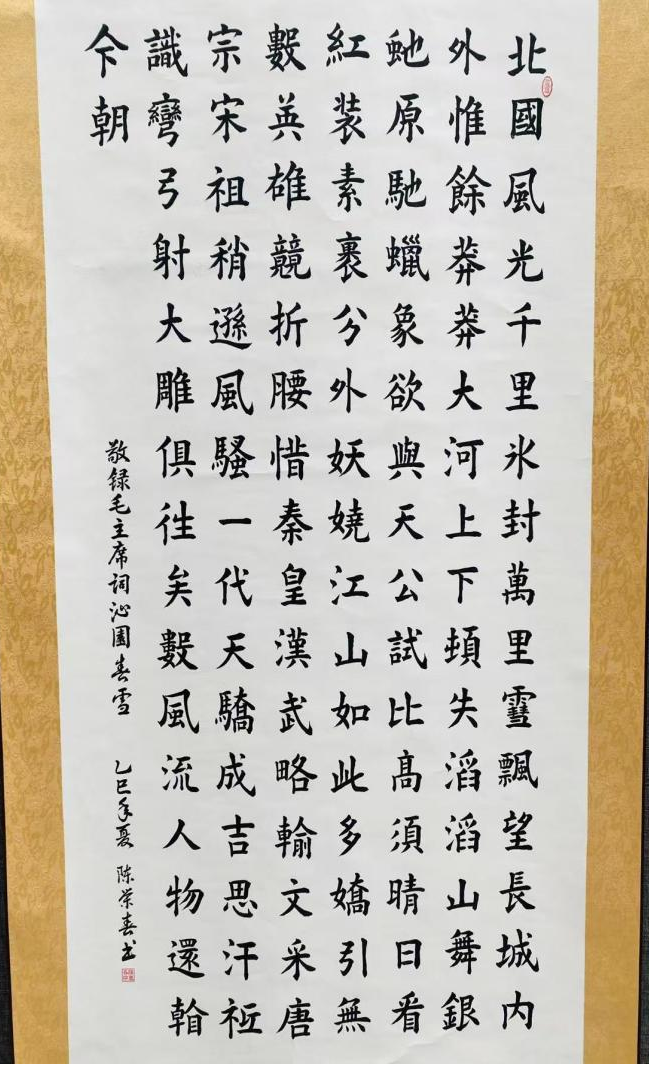 北國風光千里氷封萬里雪飄望長城内
外惟餘莽莽大河上下頓失滔滔山舞銀
虵原馳蠟象欲與天公試比高須晴日看
紅装素裹分外妖嬈江山如此多嬌引無
數英雄競折腰惜秦皇漢武略輸文采唐
宗宋祖稍遜風騷一代天驕成吉思汗祗
識彎弓射大雕俱往矣數風流人物還看
今朝
敬録毛主席詞沁園春雪 乙巳年夏 陈荣春书